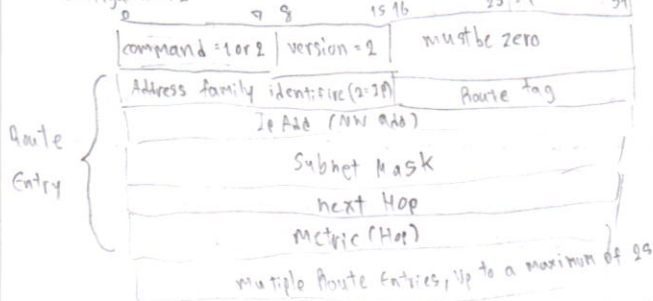 0 7 8 15 16 23 31
command = 1 or 2 version = 2 must be zero
Address family identifire (2=IP) Route tag
Ip Add (NW add)
Subnet Mask
Route
Entry
next Hop
metric (Hop)
multiple Route Entries, Up to a maximum of 25